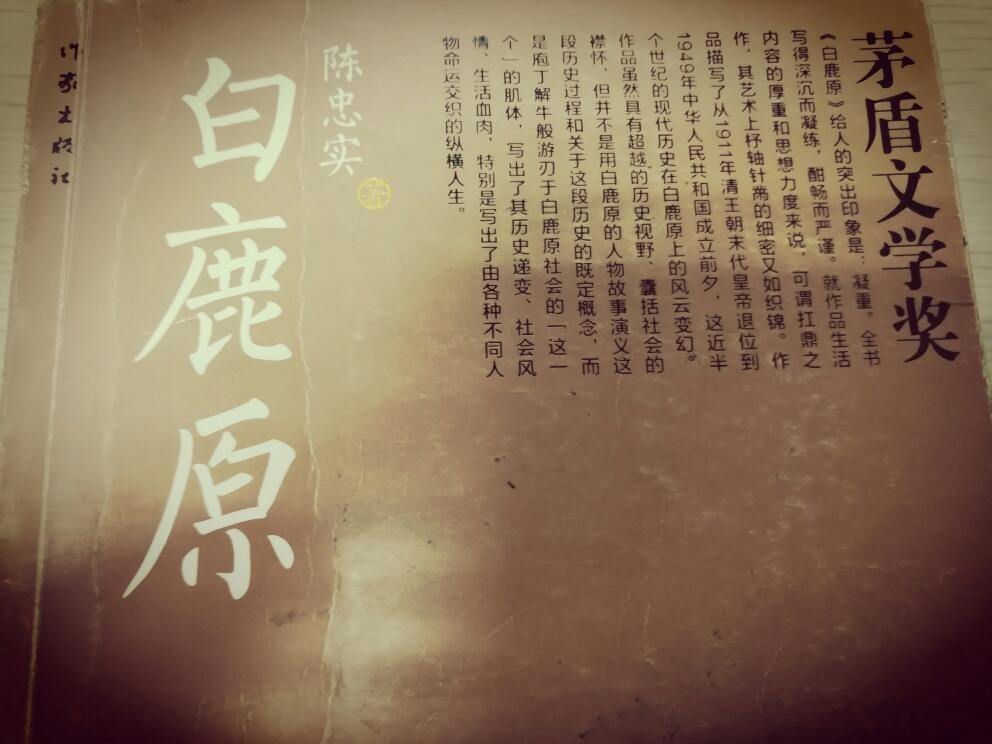 茅盾文学奖
《白鹿原》给人的突出印象是：凝重。全书
写得深沉而凝练，酣畅而严谨。就作品生活
内容的厚重和思想力度来说，可谓扛鼎之
作，其艺术上杼轴针黹的细密又如织锦。作
品描写了从1911年清王朝末代皇帝退位到
1949年中华人民共和国成立前夕，这近半
个世纪的现代历史在白鹿原上的风云变幻。
作品虽然具有超越的历史视野、囊括社会的
襟怀，但并不是用白鹿原的人物故事演义这
段历史过程和关于这段历史的既定概念，而
是庖丁解牛般游刃于白鹿原社会的“这一
个”的肌体，写出了其历史递变、社会风
情、生活血肉，特别是写出了由各种不同人
物命运交织的纵横人生。
陈忠实 著
白鹿原
作家出版社